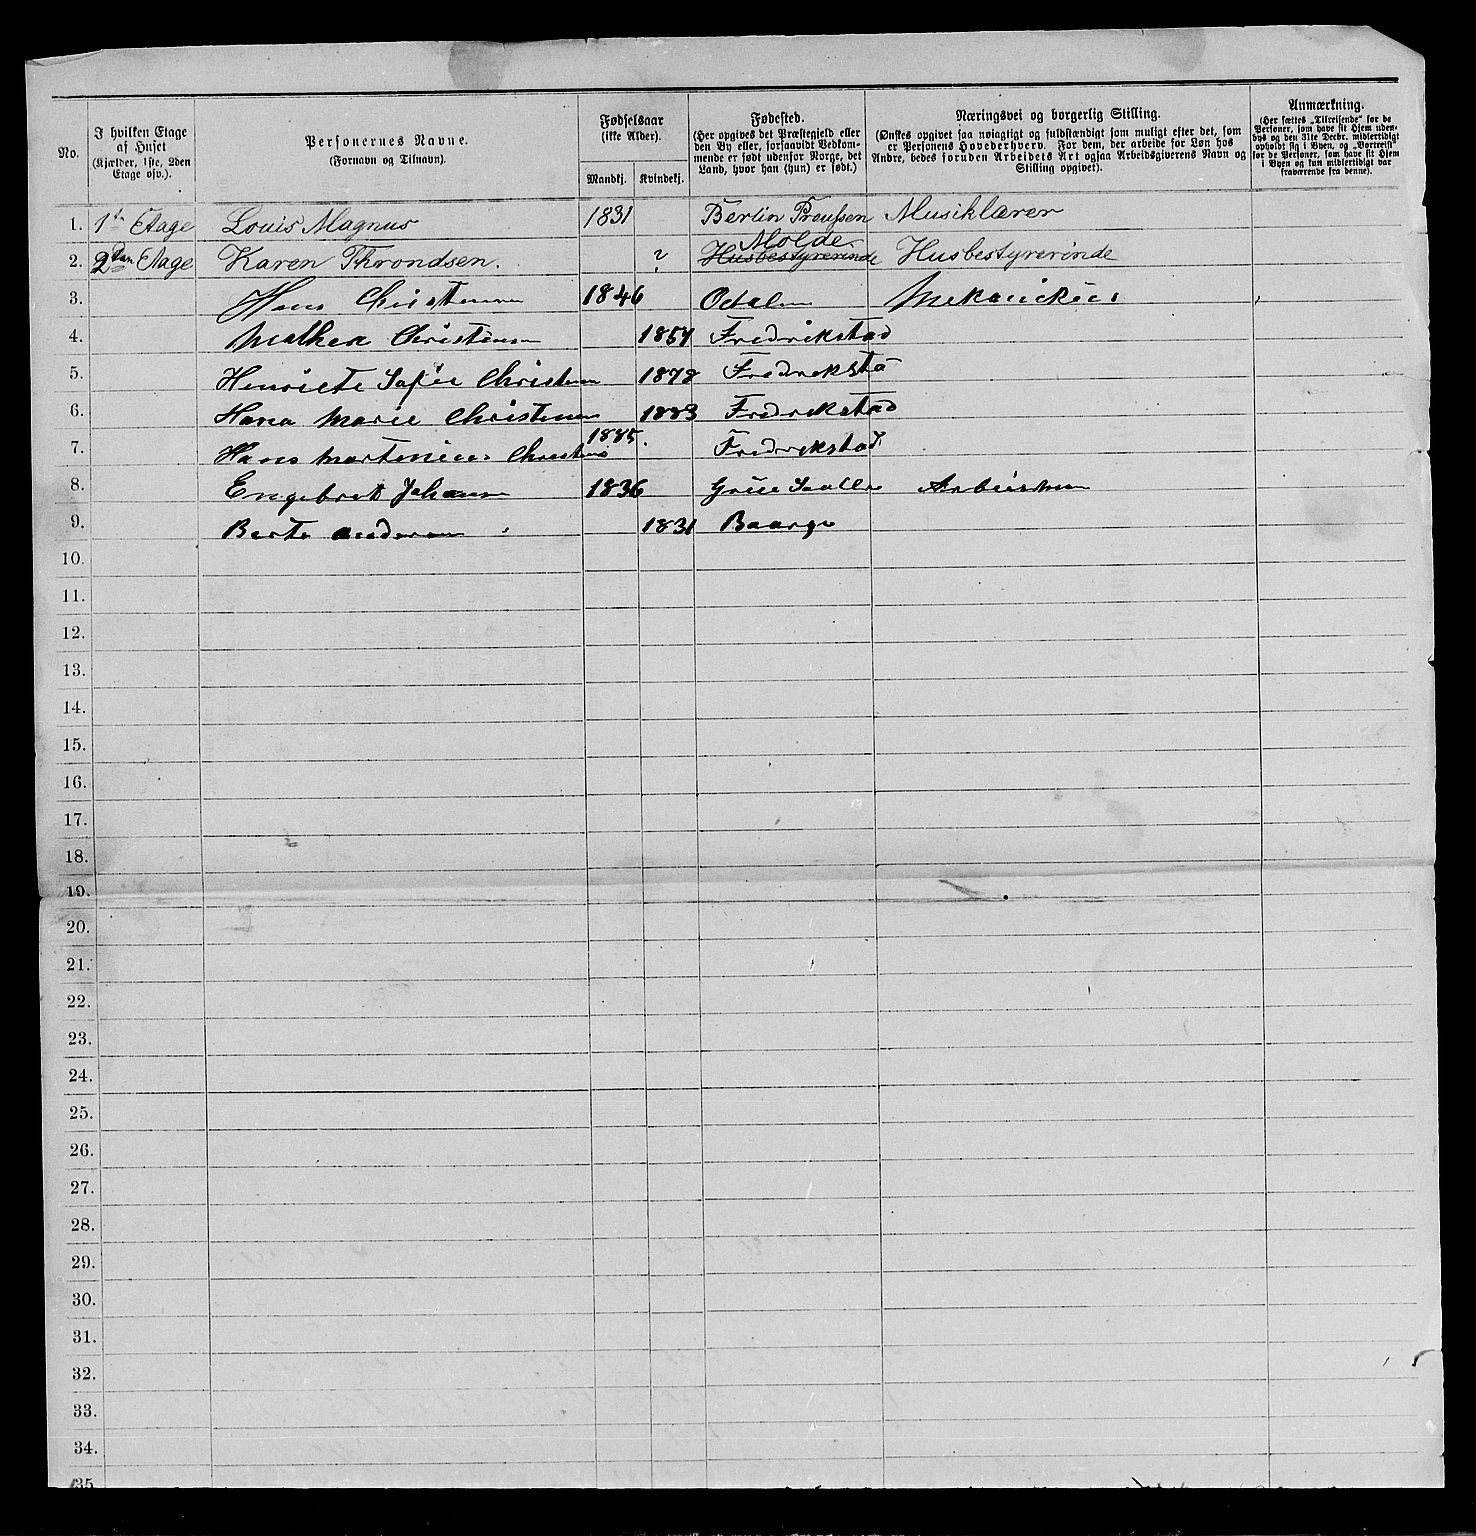 No.
I hvilken Etage af Huset (Kjælder, 1ste, 2den Etage osv.).
Personernes Navne. (Fornavn og Tilnavn).
Fødselsaar (ikke Alder).
Mandkj. Kvindekj.
Fødested. (Her opgives det Præstegjeld eller den By eller, forsaavidt Vedkommende er født udenfor Norge, det Land, hvor han (hun) er født.)
Næringsvei og borgerlig Stilling. (Ønskes opgivet saa nøiagtigt og fuldstændigt som muligt efter det, som er Personens Hovederhverv. For dem, der arbeide for Løn hos Andre, bedes foruden Arbeidets Art ogsaa Arbeidsgiverens Navn og Stilling opgivet).
Anmærkning. (Her sættes „Tilreisende“ for de Personer, som have sit Hjem udenbys og den 31te Decbr. midlertidigt opholdt sig i Byen, og „Bortreist“ for de Personer, som have sit Hjem i Byen og kun midlertidigt var fraværende fra denne).
1. 1ste Etage Louis Magnus 1831 Berlin Preussen Musiklærer
2. 2den Etage Karen Throndsen. ? Molde Husbestyrerinde Husbestyrerinde
3. Hans Christensen 1846 Odalen
4. Mathea Christensen 1857 Fredrikstad
5. Henriete Sofie Christensen 1878 Fredrikstad
6. Hana Marie Christensen 1883 Fredrikstad
7. Hans Martinius Christens 1885. Fredrikstad
8. Engebret Johansen 1836 Grue
9. Berte Andersen 1831 Baarge
10.
11.
12.
13.
14.
15.
16.
17.
18.
19.
20.
21.
22.
23.
24.
25.
26.
27.
28.
29.
30.
31.
32.
33.
34.
35